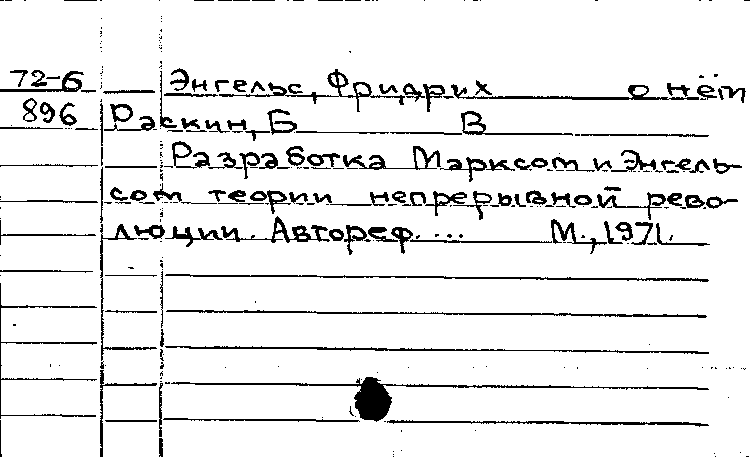 72-6 Энгельс, Фридрих о нём
896 Раскин, Б В
Разработка Марксом и Энгель-
сом теории непрерывной рево-
люции. Автореф. ... М., 1971.